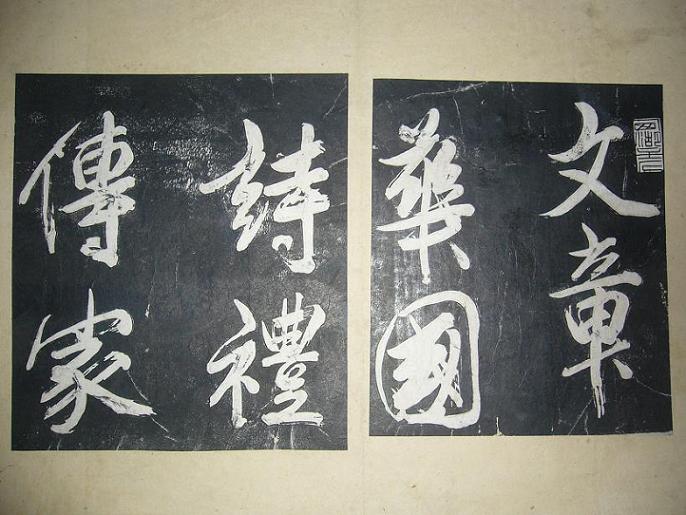 文章
華國
詩禮
傳家